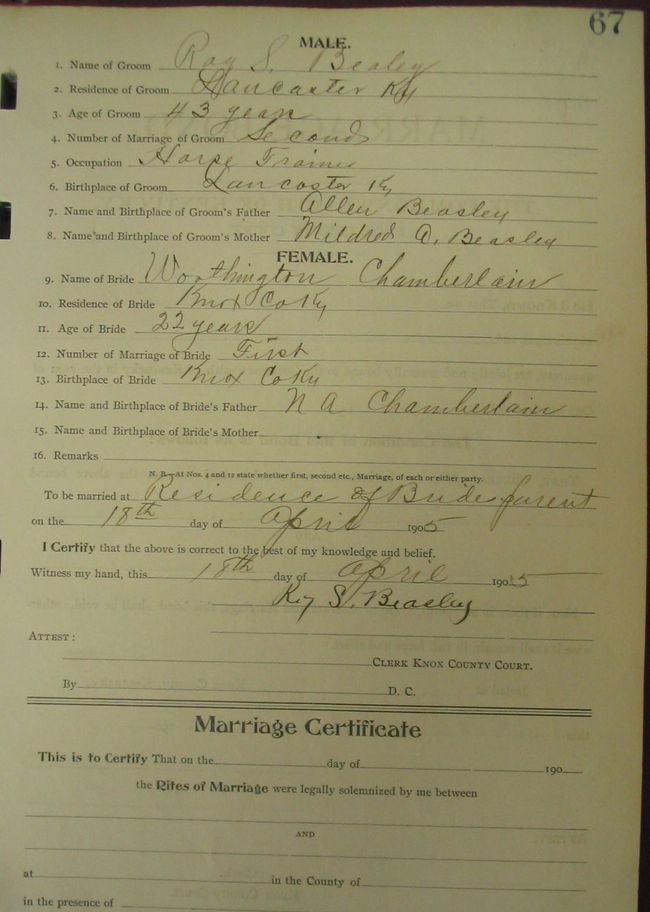 67
MALE.
1. Name of Groom Roy S. Beasley
2. Residence of Groom Lancaster Ky
3. Age of Groom 43 years
4. Number of Marriage of Groom Second
5. Occupation Horse Trainer
6. Birthplace of Groom Lancaster Ky
7. Name and Birthplace of Groom's Father Allen Beasley
8. Name and Birthplace of Groom's Mother Mildred A. Beasley
FEMALE.
9. Name of Bride Worthington Chamberlain
10. Residence of Bride Knox Co Ky
11. Age of Bride 22 years
12. Number of Marriage of Bride First
13. Birthplace of Bride Knox Co Ky
14. Name and Birthplace of Bride's Father N A Chamberlain
15. Name and Birthplace of Bride's Mother
16. Remarks
N. B.—At Nos. 4 and 12 state whether first, second etc., Marriage, of each or either party.
To be married at Residence of Brides parent
on the 18th day of April 1905
I Certify that the above is correct to the best of my knowledge and belief.
Witness my hand, this 18th day of April 1905
Roy S. Beasley
ATTEST:
CLERK KNOX COUNTY COURT.
By D. C.
Marriage Certificate
This is to Certify That on the day of 190
the Rites of Marriage were legally solemnized by me between
AND
at in the County of
in the presence of